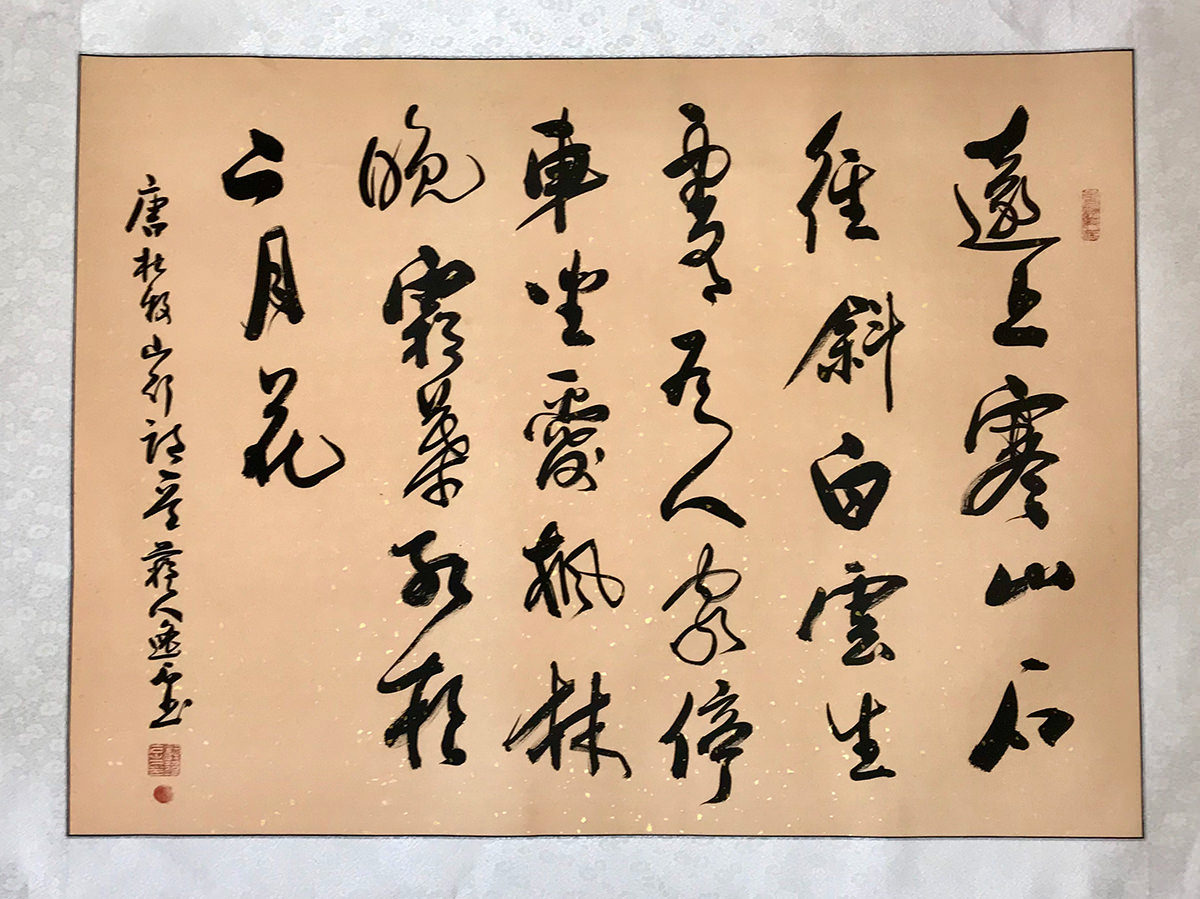 遠上寒山石
徑斜白雲生
處有人家停
車坐愛楓林
晚霜葉紅於
二月花
唐杜牧山行詩